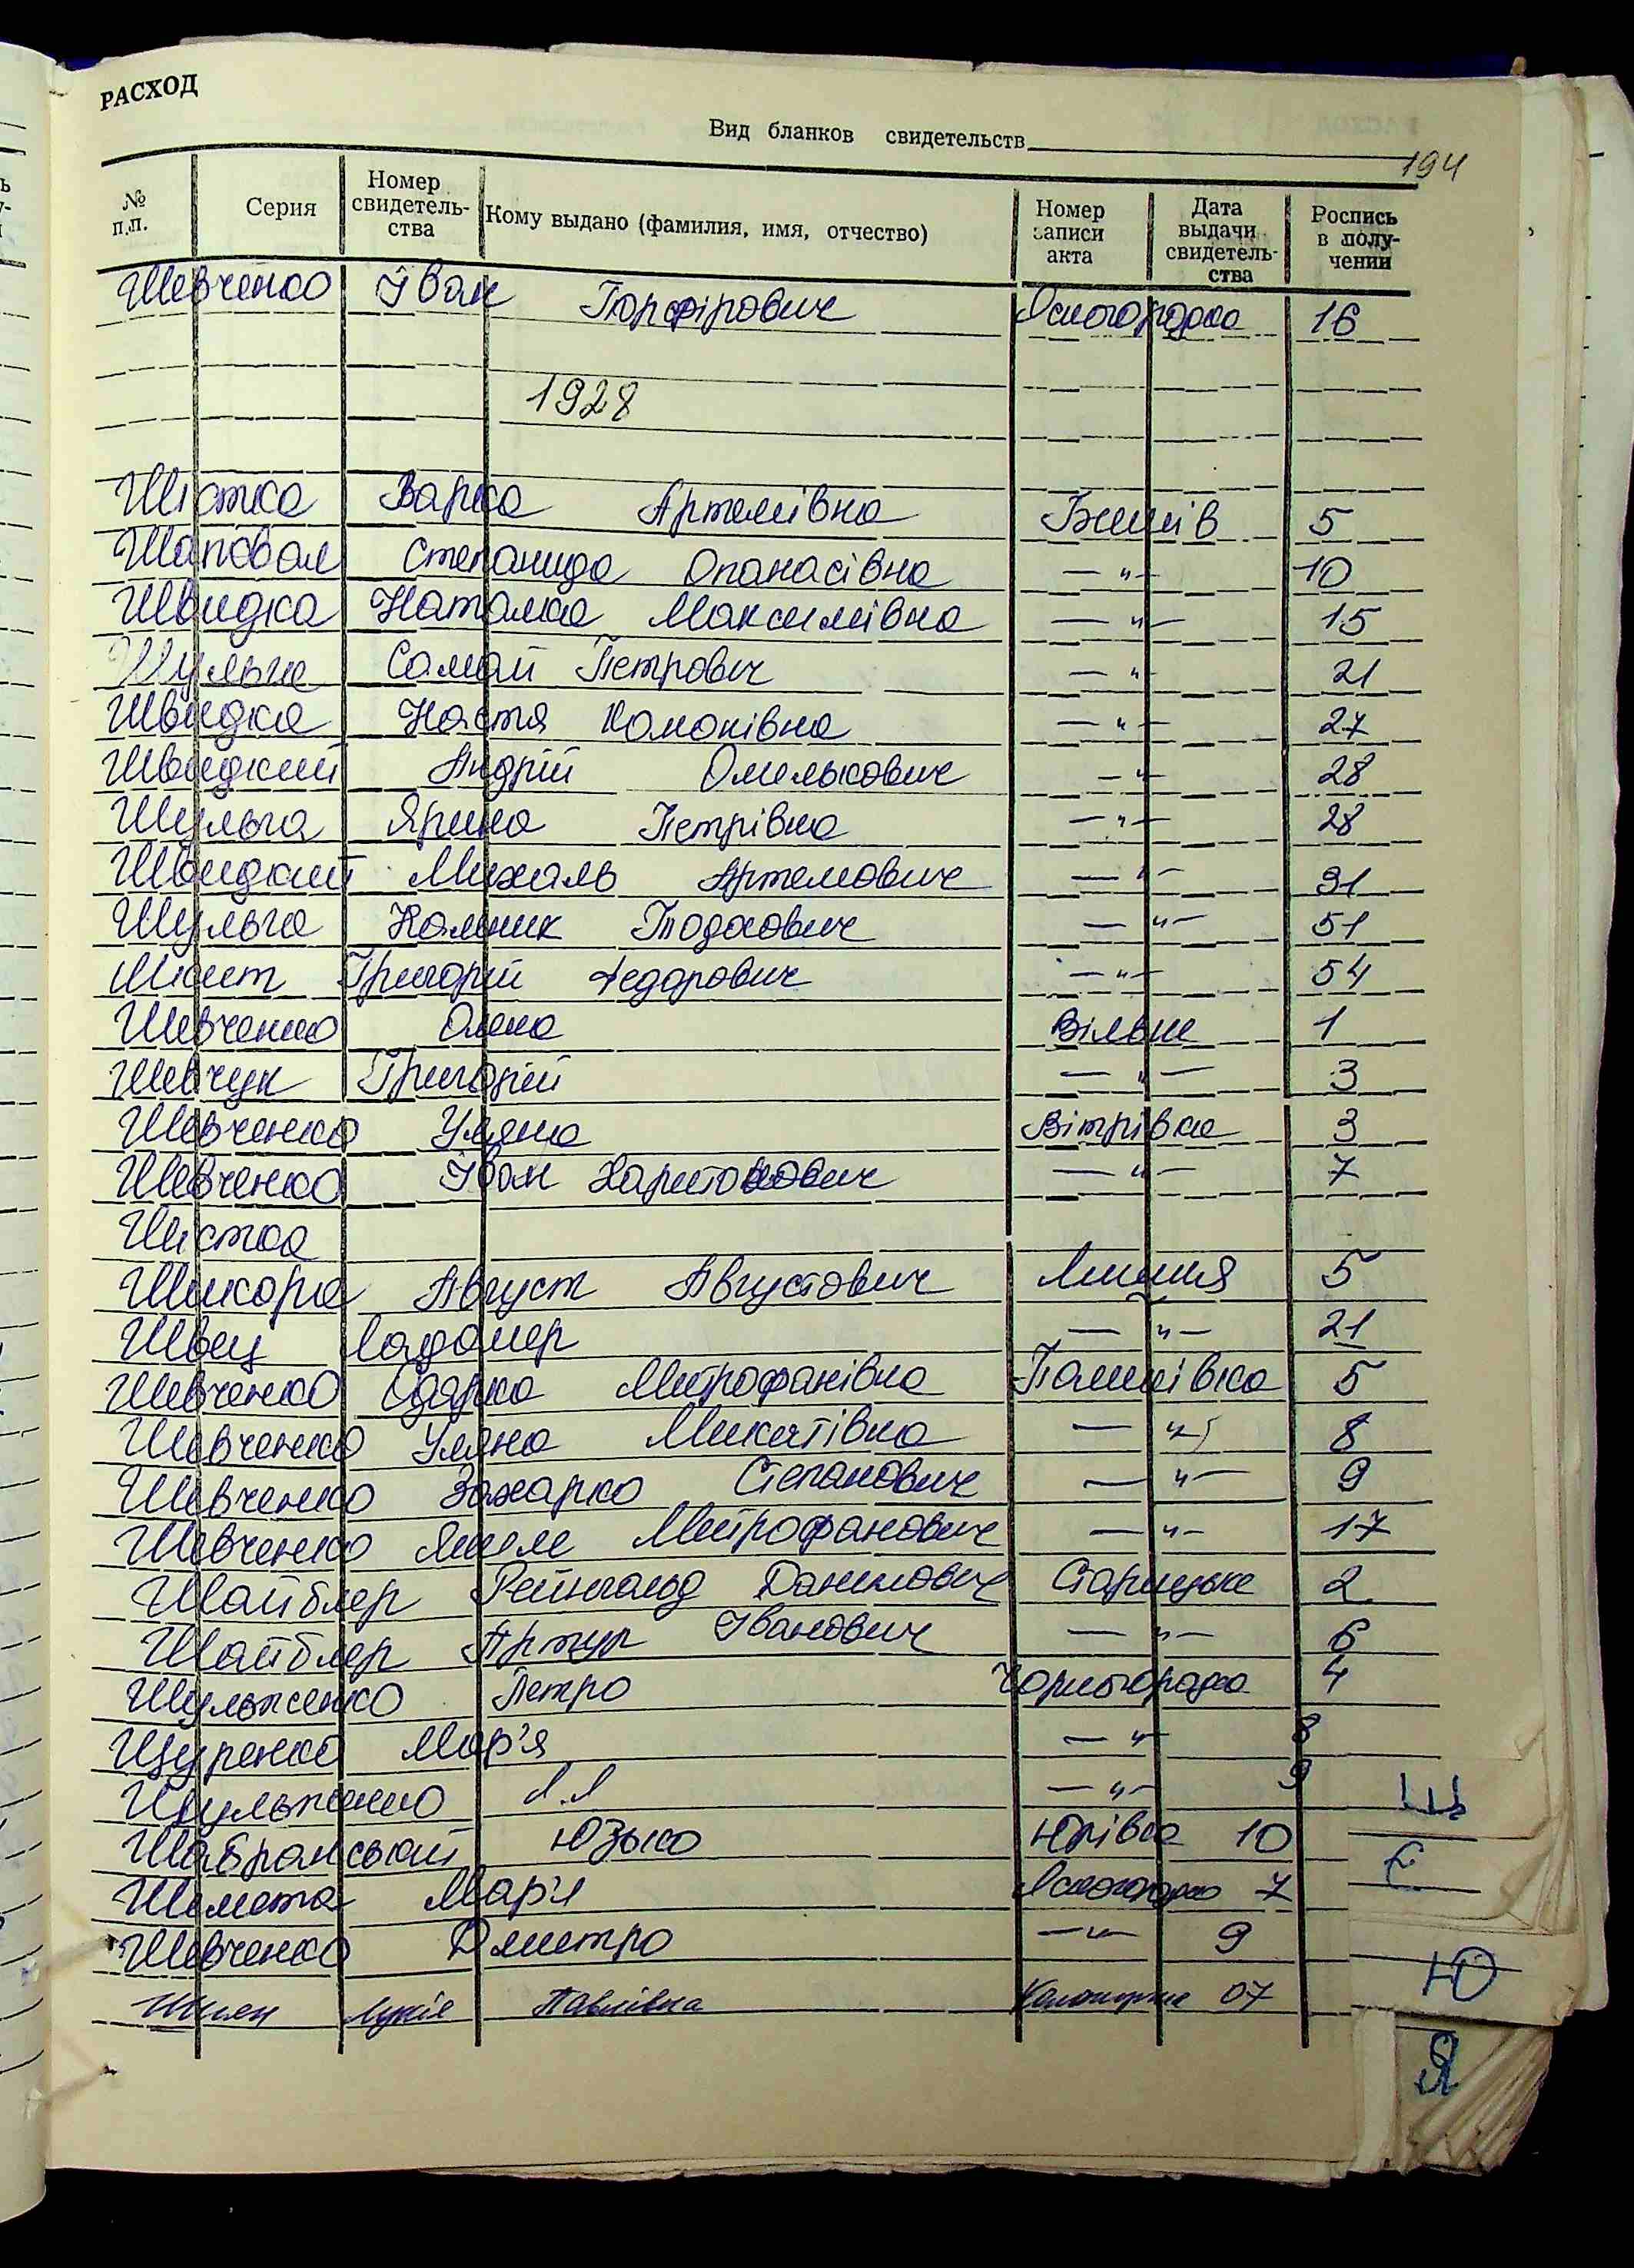 РАСХОД
Вид бланков свидетельств
194
№ п.п. Серия Номер свидетель-ства Кому выдано (фамилия, имя, отчество) Номер записи акта Дата выдачи свидетель-ства Роспись в полу-чении
Шевченко Іван Порфірович Ясногородка 16
1928
Шістка Варка Артемівна Бишів 5
Шаповал Степанида Опанасівна —"— 10
Швидка Наталка Максимівна —"— 15
Шульга Петрович —"— 21
Швидка Настя —"— 27
Швидкий Андрій Омелькович —"— 28
Шульга Ярина Петрівна —"— 28
Швидкий Михаль Артемович —"— 31
Шульга Тодосович —"— 51
Григорій Федорович —"— 54
Шевченко Олена Вільне 1
Шевчук Григорій —"— 3
Шевченко Уляна Вітрівка 3
Шевченко Іван Харитонович —"— 7
Шистка
Шикора Август Августович Лишня 5
Швец Ладомер —"— 21
Шевченко Одарка Митрофанівна Пашківка 5
Шевченко Уляна Микитівна —"— 8
Шевченко Захарко Степанович —"— 9
Шевченко Митрофанович —"— 17
Шайблер Рейнгольд Данилович Старицьке 2
Шайблер Артур Іванович —"— 6
Шульженко Петро Чорногородка 4
Щуренко Мар'я —"— 8
Шульженко Л.Л —"— 9
Шабранський Юзько Юрівка 10
Шемета Мар'я Ясногородка 7
Шевченко Дмитро —"— 9
Лукія Павлівна 07
Щ
Є
Ю
Я